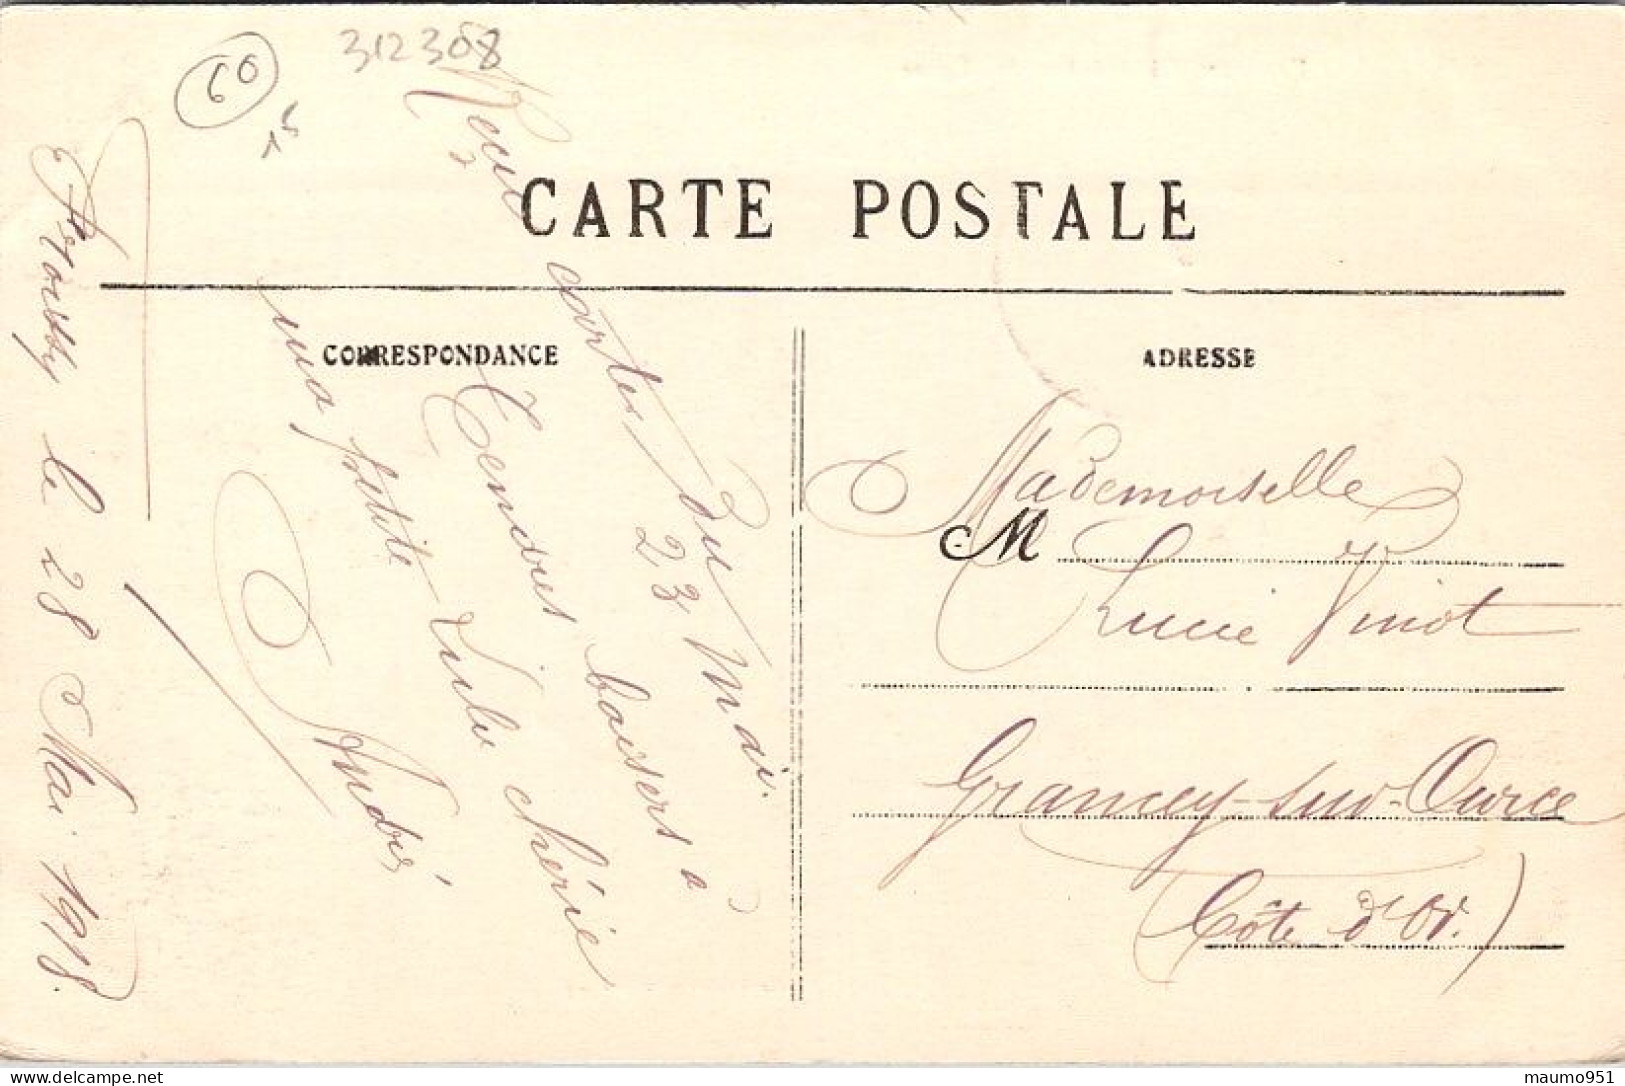 60
312308
15
CARTE POSTALE
CORRESPONDANCE
ADRESSE
le 28 Mai 1918.
Reçu cartes du
23 Mai.
Tendres baisers à
ma petite Lulu chérie
André
Mademoiselle
M
Lucie Vinot
Grancey-sur-Ource
(Côte d'Or.)
maumo951